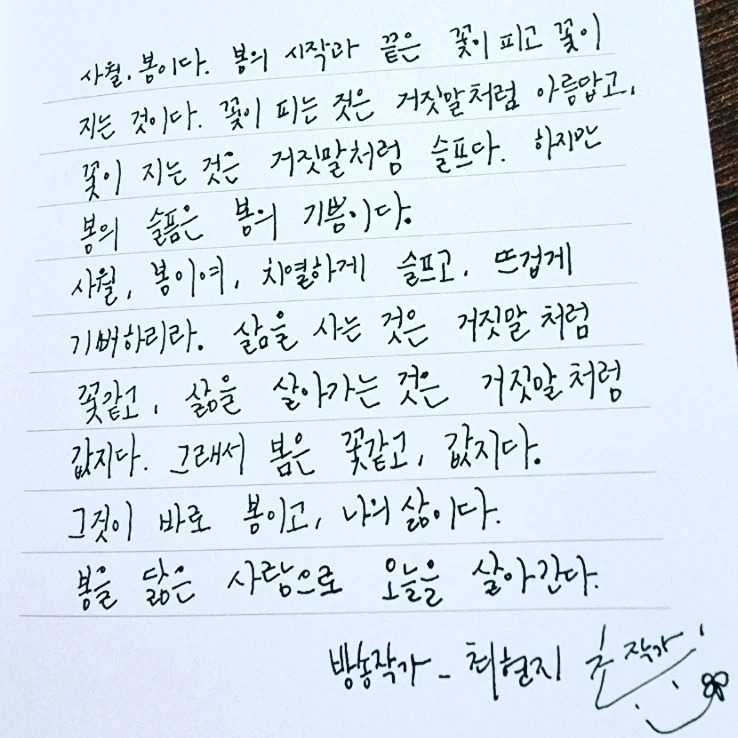 사월, 봄이다. 봄의 시작과 끝은 꽃이 피고 꽃이
지는 것이다. 꽃이 피는 것은 거짓말처럼 아름답고,
꽃이 지는 것은 거짓말처럼 슬프다. 하지만
봄의 슬픔은 봄의 기쁨이다.
사월, 봄이여, 치열하게 슬프고, 뜨겁게
기뻐하리라. 삶을 사는 것은 거짓말처럼
꽃같고, 삶을 살아가는 것은 거짓말처럼
값지다. 그래서 봄은 꽃같고, 값지다.
그것이 바로 봄이고, 나의 삶이다.
봄을 닮은 사람으로 오늘을 살아간다.
방송작가 - 최현지 초작가